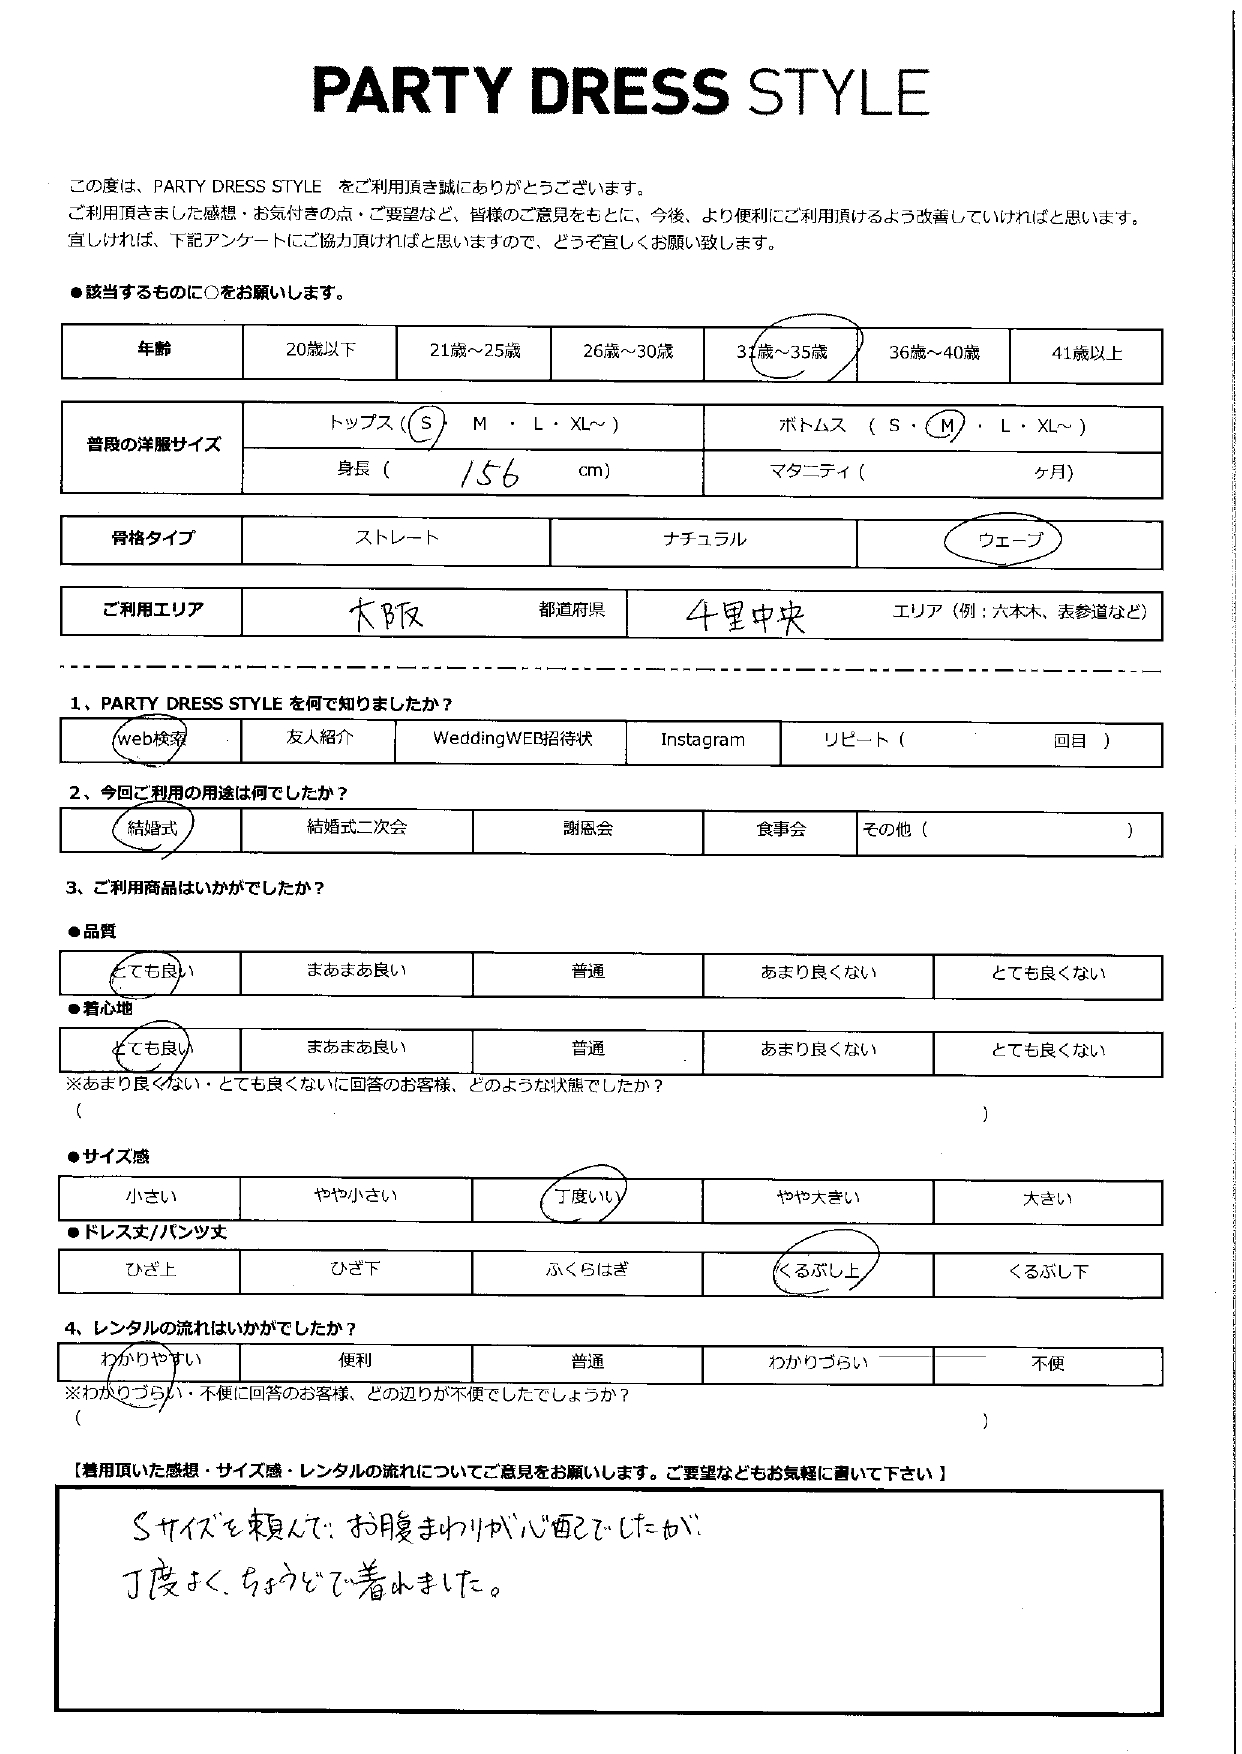 PARTY DRESS STYLE
この度は、PARTY DRESS STYLE をご利用頂き誠にありがとうございます。
ご利用頂きました感想・お気付きの点・ご要望など、皆様のご意見をもとに、今後、より便利にご利用頂けるよう改善していければと思います。
宜しければ、下記アンケートにご協力頂ければと思いますので、どうぞ宜しくお願い致します。
●該当するものに○をお願いします。
年齢 20歳以下 21歳～25歳 26歳～30歳 31歳～35歳 36歳～40歳 41歳以上
普段の洋服サイズ トップス (S・ M ・ L・ XL～ ) ボトムス ( S ・ M ・ L・ XL～ )
身長 ( 156 cm) マタニティ ( ヶ月)
骨格タイプ ストレート ナチュラル ウェーブ
ご利用エリア 大阪 都道府県 千里中央 エリア（例；六本木、表参道など）
1、PARTY DRESS STYLE を何で知りましたか？
web検索 友人紹介 WeddingWEB招待状 Instagram リピート ( 回目 )
2、今回ご利用の用途は何でしたか？
結婚式 結婚式二次会 謝恩会 食事会 その他 ( )
3、ご利用商品はいかがでしたか？
●品質
とても良い まあまあ良い 普通 あまり良くない とても良くない
●着心地
とても良い まあまあ良い 普通 あまり良くない とても良くない
※あまり良くない・とても良くないに回答のお客様、どのような状態でしたか？
( )
●サイズ感
小さい やや小さい 丁度いい やや大きい 大きい
●ドレス丈/パンツ丈
ひざ上 ひざ下 ふくらはぎ くるぶし上 くるぶし下
4、レンタルの流れはいかがでしたか？
わかりやすい 便利 普通 わかりづらい 不便
※わかりづらい・不便に回答のお客様、どの辺りが不便でしたでしょうか？
( )
【着用頂いた感想・サイズ感・レンタルの流れについてご意見をお願いします。ご要望などもお気軽に書いて下さい】
Sサイズを頼んで、お腹まわりが心配でしたが、
丁度よく、ちょうどで着れました。